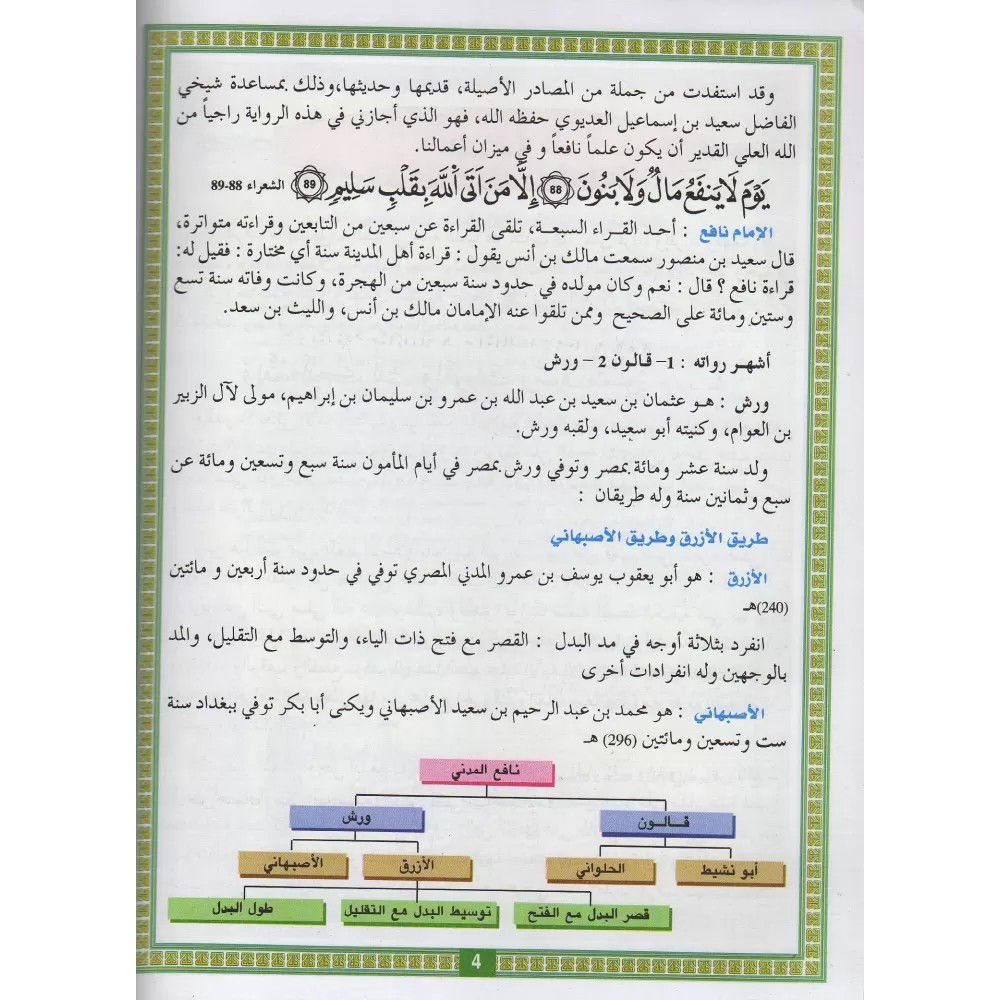 وقد استفدت من جملة من المصادر الأصيلة، قديمها وحديثها،وذلك بمساعدة شيخي
الفاضل سعيد بن إسماعيل العديوي حفظه الله، فهو الذي أجازني في هذه الرواية راجياً من
الله العلي القدير أن يكون علماً نافعاً و في ميزان أعمالنا.
يَوْمَ لَا يَنفَعُ مَالٌ وَلَا بَنُونَ 88 إِلَّا مَنَ اَتَى اَللَّهَ بِقَلْبٍ سَلِيمٍ 89 الشعراء 88-89
الإمام نافع : أحد القراء السبعة، تلقى القراءة عن سبعين من التابعين وقراءته متواترة،
قال سعيد بن منصور سمعت مالك بن أنس يقول : قراءة أهل المدينة سنة أي مختارة : فقيل له:
قراءة نافع ؟ قال : نعم وكان مولده في حدود سنة سبعين من الهجرة، وكانت وفاته سنة تسع
وستين ومائة على الصحيح وممن تلقوا عنه الإمامان مالك بن أنس، والليث بن سعد.
أشهر رواته : 1– قالون 2 – ورش
ورش : هو عثمان بن سعيد بن عبد الله بن عمرو بن سليمان بن إبراهيم، مولى لآل الزبير
بن العوام، وكنيته أبو سعيد، ولقبه ورش.
ولد سنة عشر ومائة بمصر وتوفي ورش بمصر في أيام المأمون سنة سبع وتسعين ومائة عن
سبع وثمانين سنة وله طريقان :
طريق الأزرق وطريق الأصبهاني
الأزرق : هو أبو يعقوب يوسف بن عمرو المدني المصري توفي في حدود سنة أربعين و مائتين
(240)هـ
انفرد بثلاثة أوجه في مد البدل : القصر مع فتح ذات الياء، والتوسط مع التقليل، والمد
بالوجهين وله انفرادات أخرى
الأصبهاني : هو محمد بن عبد الرحيم بن سعيد الأصبهاني ويكنى أبا بكر توفي ببغداد سنة
ست وتسعين ومائتين (296) هـ
نافع المدني
قالون
ورش
أبو نشيط
الحلواني
الأزرق
الأصبهاني
قصر البدل مع الفتح
توسيط البدل مع التقليل
طول البدل
4